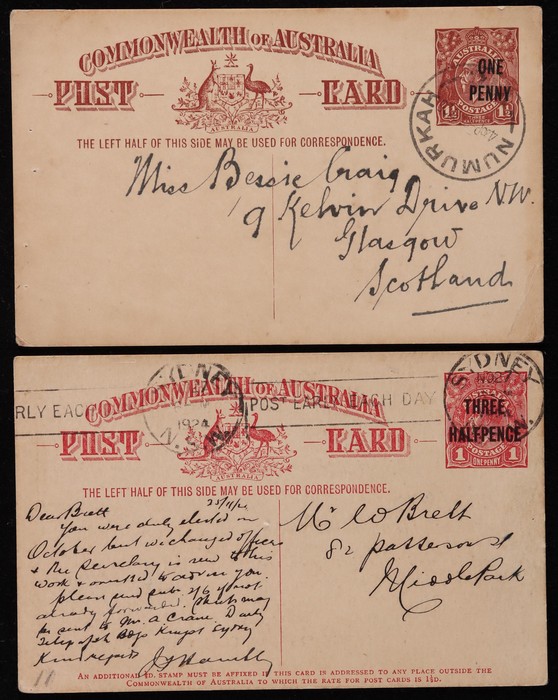 COMMONWEALTH OF AUSTRALIA
POST CARD
AUSTRALIA
THE LEFT HALF OF THIS SIDE MAY BE USED FOR CORRESPONDENCE.
AUSTRALIA
ONE
PENNY
1½ POSTAGE 1½
NUMURKAH
Miss Bessie Craig
9 Kelvin Drive N.W.
Glasgow
Scotland
SYDNEY
1924
N.S.W.
POST EARLY EACH DAY
SYDNEY
COMMONWEALTH OF AUSTRALIA
POST CARD
THREE
HALFPENCE
POSTAGE
1 ONE PENNY 1
THE LEFT HALF OF THIS SIDE MAY BE USED FOR CORRESPONDENCE.
Dear Brett
You were duly elected in
October but we changed officers
& the Secretary is new to this
work & omitted to advise you.
please send sub. 2/6 if not
already forwarded.
be sent to Mr. A Crane. Daily
Telegraph Kings Sydney
Kind regards
Mr W Brett
82 Patterson St
Middle Park
AN ADDITIONAL ½D. STAMP MUST BE AFFIXED IF THIS CARD IS ADDRESSED TO ANY PLACE OUTSIDE THE
COMMONWEALTH OF AUSTRALIA TO WHICH THE RATE FOR POST CARDS IS 1½D.